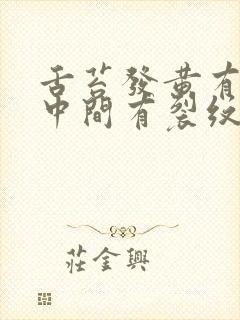 舌苔發黄有
中間有裂纹
莊金興